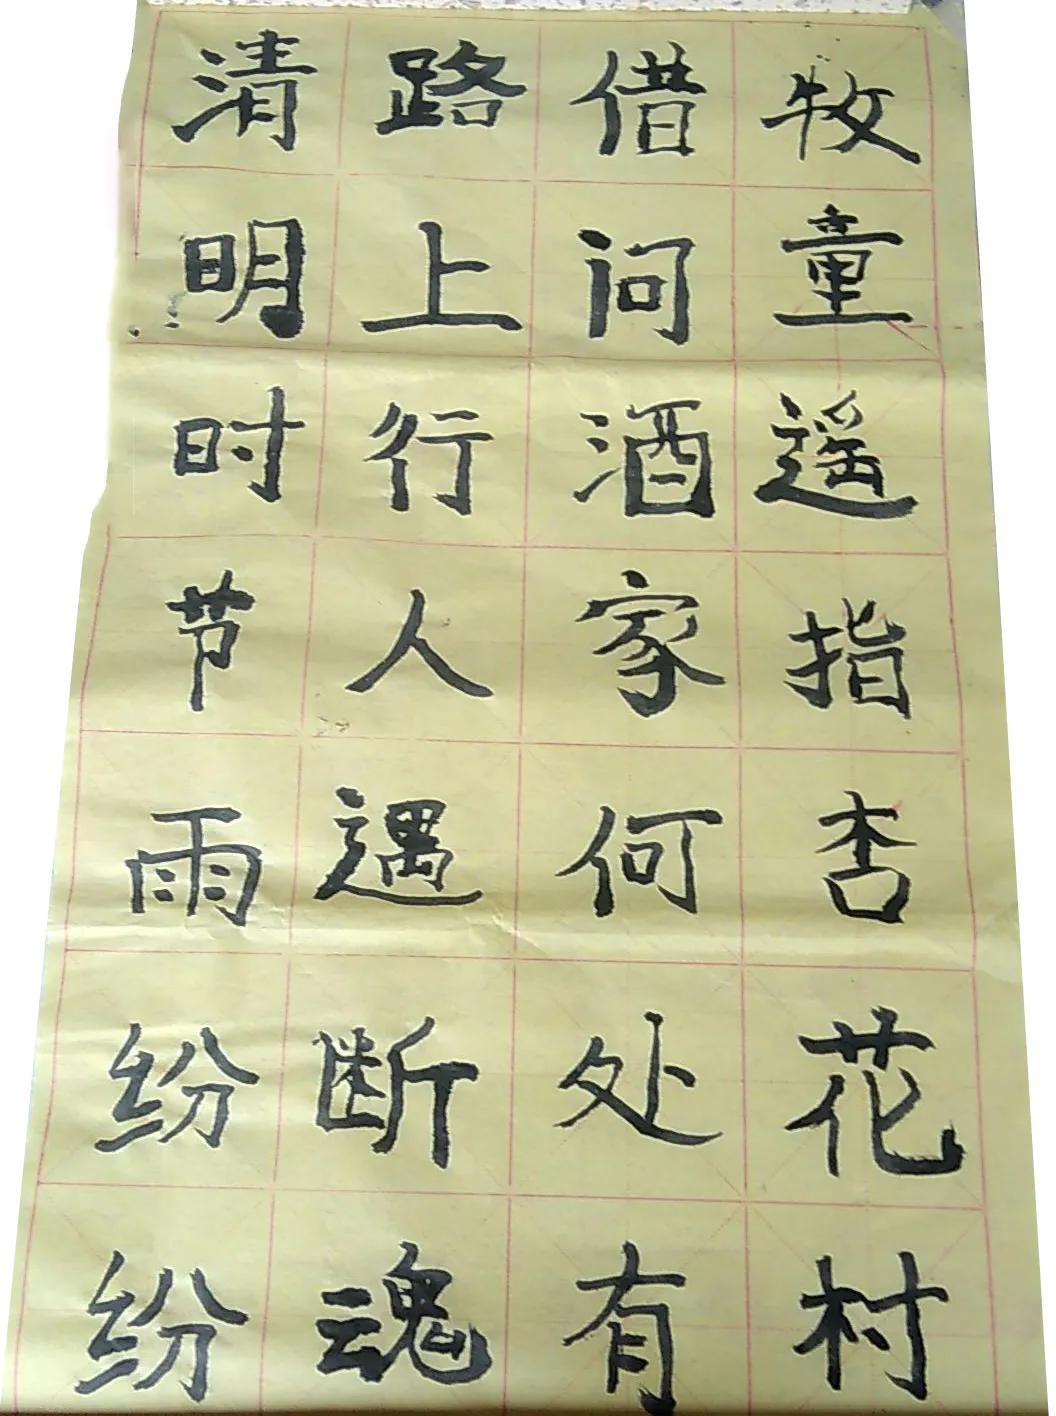 清明时节雨纷纷
路上行人遇断魂
借问酒家何处有
牧童遥指杏花村